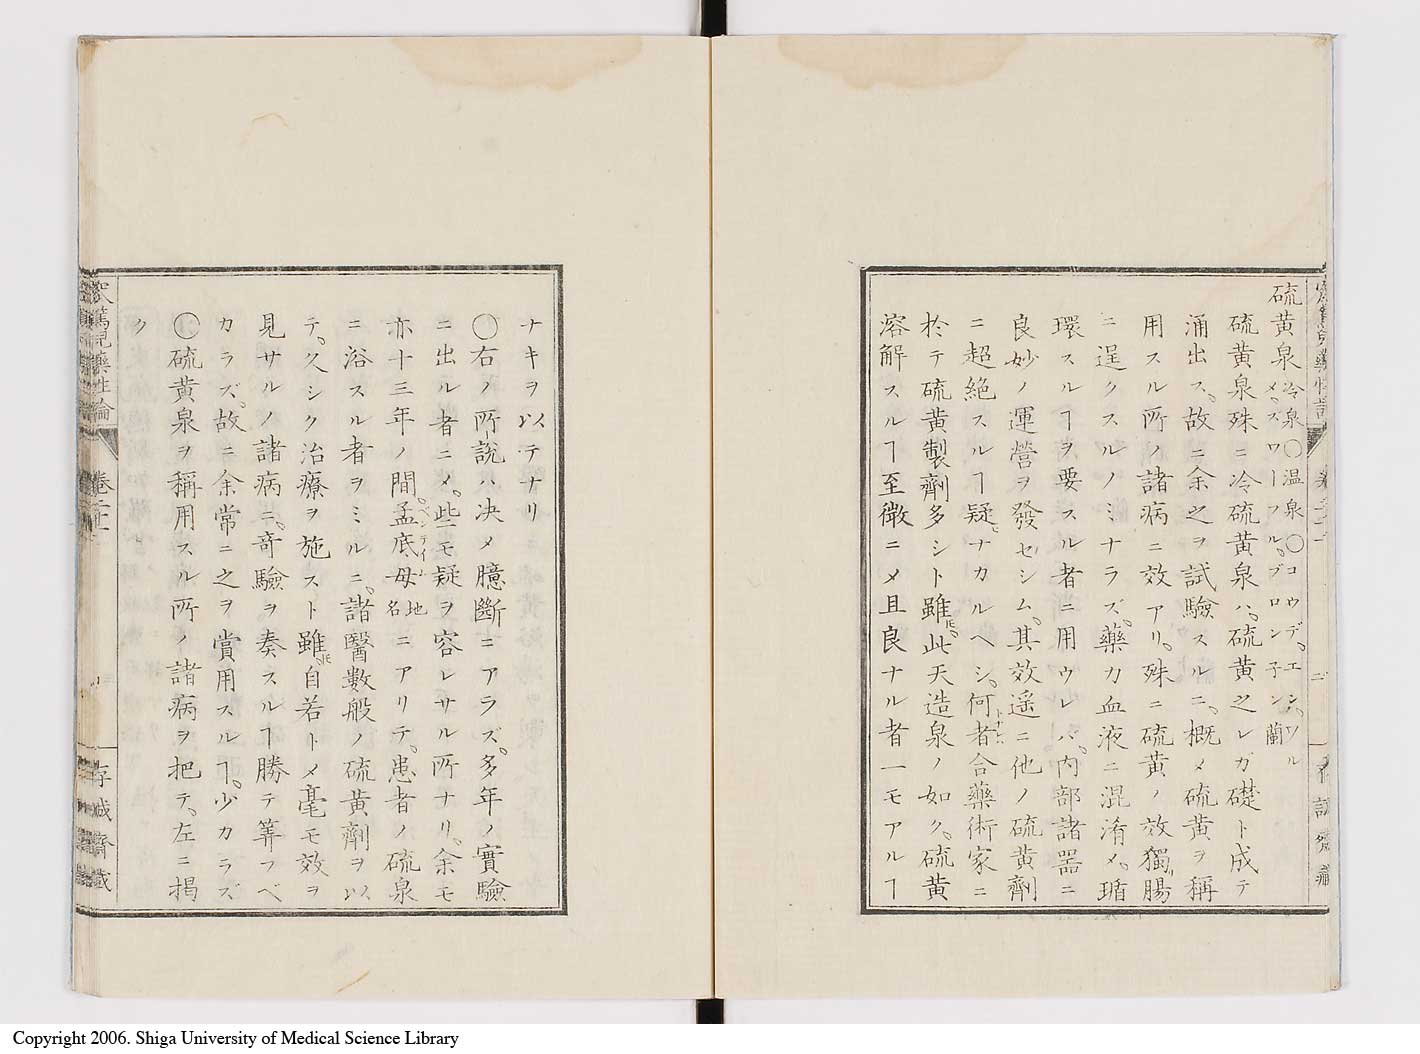 硫黄泉 冷泉〇温泉〇コウデ、エン、ワル
メ、スワーフル、ブロンネン 蘭
硫黄泉殊ニ冷硫黄泉ハ、硫黄之レガ礎ト成テ
涌出ス、故ニ余之ヲ試驗スルニ、概メ硫黄ヲ稱
用スル所ノ諸病ニ效アリ、殊ニ硫黄ノ效獨腸
ニ逞クスルノミナラズ、藥力血液ニ混淆メ、循
環スルヿヲ要スル者ニ用ウレバ、內部諸器ニ
良妙ノ運營ヲ發ゼシム、其效遥ニ他ノ硫黄劑
ニ超絶スルヿ疑ナカルヘシ、何者合藥術家ニ
於テ硫黄製劑多シト雖𪜈、此天造泉ノ如ク、硫黄
溶解スルヿ至微ニメ且良ナル者一モアルヿ
ナキヲ以テナリ
〇右ノ所説ハ決メ臆斷ニアラズ、多年ノ實驗
ニ出ル者ニメ、些モ疑ヲ容レサル所ナリ、余モ
亦十三年ノ間孟底母 地名 ニアリテ、患者ノ硫泉
ニ浴スル者ヲミルニ、諸醫數般ノ硫黄劑ヲ以
テ、久シク治療ヲ施スト雖𪜈、自若トメ毫モ效ヲ
見サルノ諸病ニ、奇驗ヲ奏スルヿ勝テ筭フベ
カラズ、故ニ余常ニ之ヲ賞用スルヿ、少カラズ
〇硫黄泉ヲ稱用スル所ノ諸病ヲ把テ、左ニ掲
ク
篤兒藥性論
卷二十
存誠齋藏
Copyright 2006. Shiga University of Medical Science Library